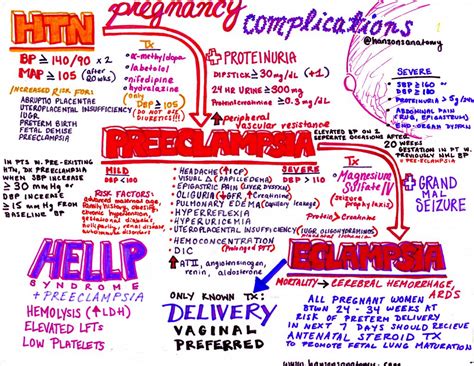 pregnancy
complications
@hanzonsanatomy
HTN
BP ≥ 140/90 x 2
MAP ≥ 105 (after 20 weeks)
↑INCREASED RISK FOR:
ABRUPTIO PLACENTAE
UTEROPLACENTAL INSUFFICIENCY
IUGR
PRETERM BIRTH
FETAL DEMISE
PREECLAMPSIA
Tx
α-methyldopa
labetolol
nifedipine
hydralazine
only
DBP ≥ 105
DIURETICS!!!
+ PROTEINURIA
DIPSTICK ≥ 30 mg/dL (+1)
24 HR URINE ≥ 300 mg
Protein:creatinine ≥ 0.3 mg/dL
↑ peripheral
vascular resistance
SEVERE
SBP ≥ 160
DBP ≥ 110
PROTEINURIA
ABDOMINAL PAIN
(RUQ, EPIGASTRIUM)
END-ORGAN DYSFXN
PREECLAMPSIA
ELEVATED BP ON 2
SEPARATE OCCASIONS AFTER
20 WEEKS
GESTATION IN PT W.
PREVIOUSLY NML BP
= PRE-ECLAMPSIA
IN PTS W. PRE-EXISTING
HTN, DX PREECLAMPSIA
WHEN SBP INCREASE
≥ 30 mm Hg or
DBP INCREASE
≥ 15 mm Hg FROM
BASELINE BP
MILD
DBP < 110
RISK FACTORS:
advanced maternal age,
family history, obesity,
chronic hypertension,
gestational diabetes
nulliparity, renal disease,
HEADACHE (↑ICP)
VISUAL Δ (PAPILLEDEMA)
EPIGASTRIC PAIN (LIVER DYSFXN)
OLIGURIA
PULMONARY EDEMA (Capillary leakage)
HYPERREFLEXIA
HYPERURICEMIA
UTEROPLACENTAL INSUFFICIENCY
(IUGR, OLIGOHYDRAMNIOS)
HEMOCONCENTRATION
DIC
(Prolonged PTT)
↑ AT II, angiotensinogen,
renin, aldosterone
SEVERE
DBP > 110
Tx
Magnesium
Sulfate IV
(seizure
prophylaxis)
Protein > Creatinine
+ GRAND
MAL
SEIZURE
HELLP
SYNDROME
+ PREECLAMPSIA
HEMOLYSIS (↑LDH)
ELEVATED LFTs
LOW PLATELETS
ONLY KNOWN TX:
DELIVERY
VAGINAL
PREFERRED
ECLAMPSIA
MORTALITY → CEREBRAL HEMORRHAGE,
ARDS
ALL PREGNANT WOMEN
BTWN 24 - 34 WEEKS AT
RISK OF PRETERM DELIVERY
IN NEXT 7 DAYS SHOULD RECIEVE
ANTENATAL STEROID TX
TO PROMOTE FETAL LUNG MATURATION
www.hanzonsanatomy.com